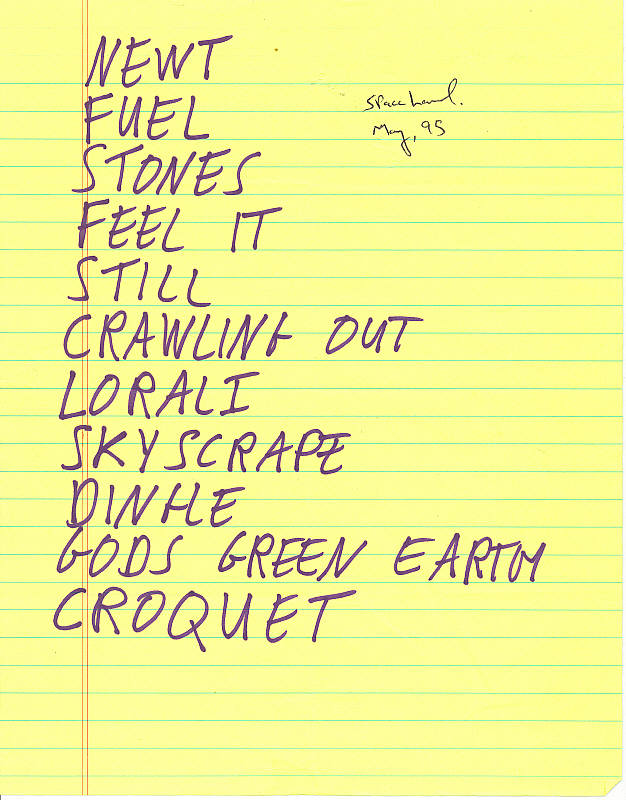 NEWT
Spaceland.
May, 95
FUEL
STONES
FEEL IT
STILL
CRAWLING OUT
LORALI
SKYSCRAPE
DINGLE
GODS GREEN EARTH
CROQUET